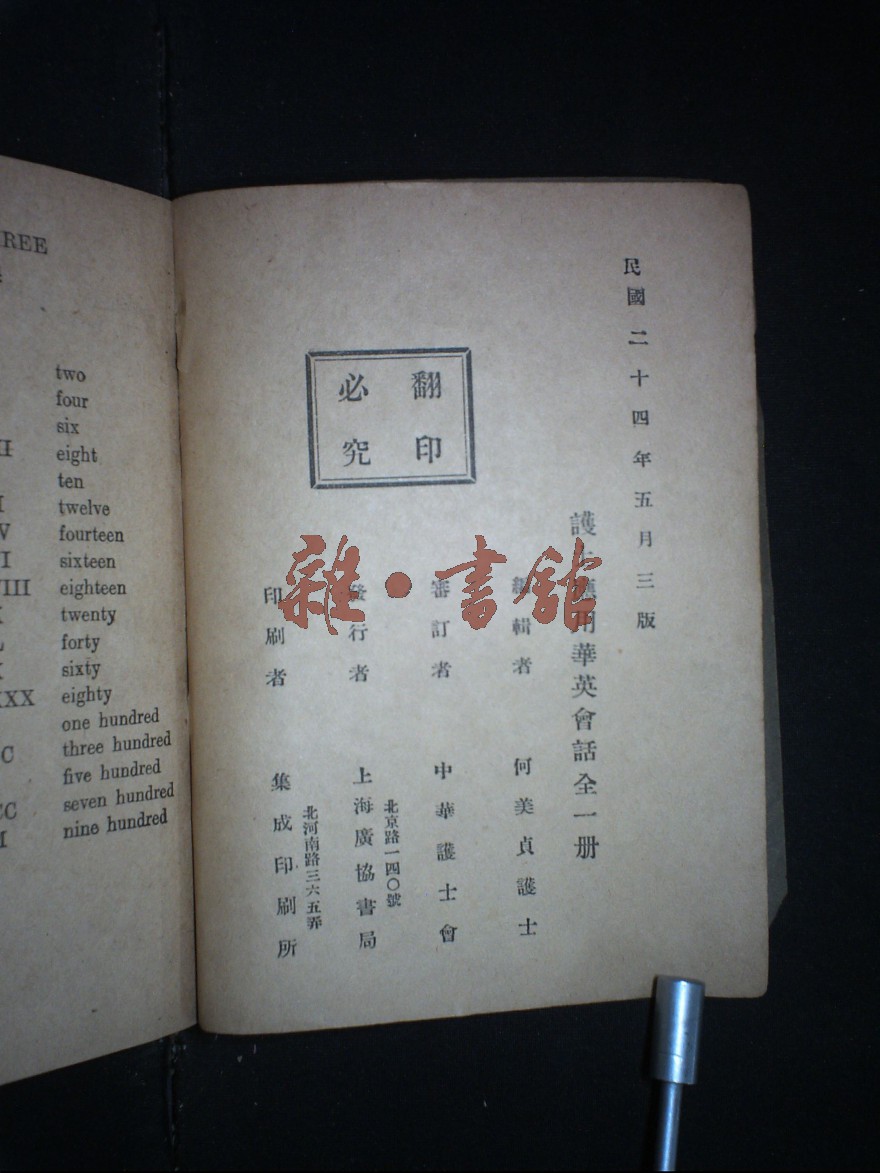 REE
two
four
six
II eight
ten
I twelve
V fourteen
VI sixteen
VIII eighteen
X twenty
L forty
X sixty
XXX eighty
one hundred
C three hundred
five hundred
CC seven hundred
M nine hundred
民國二十四年五月三版
護士應用華英會話全一册
編輯者 何美貞護士
審訂者 中華護士會
發行者 上海廣協書局
北京路一四〇號
印刷者 集成印刷所
北河南路三六五弄
翻印
必究
雜·書館